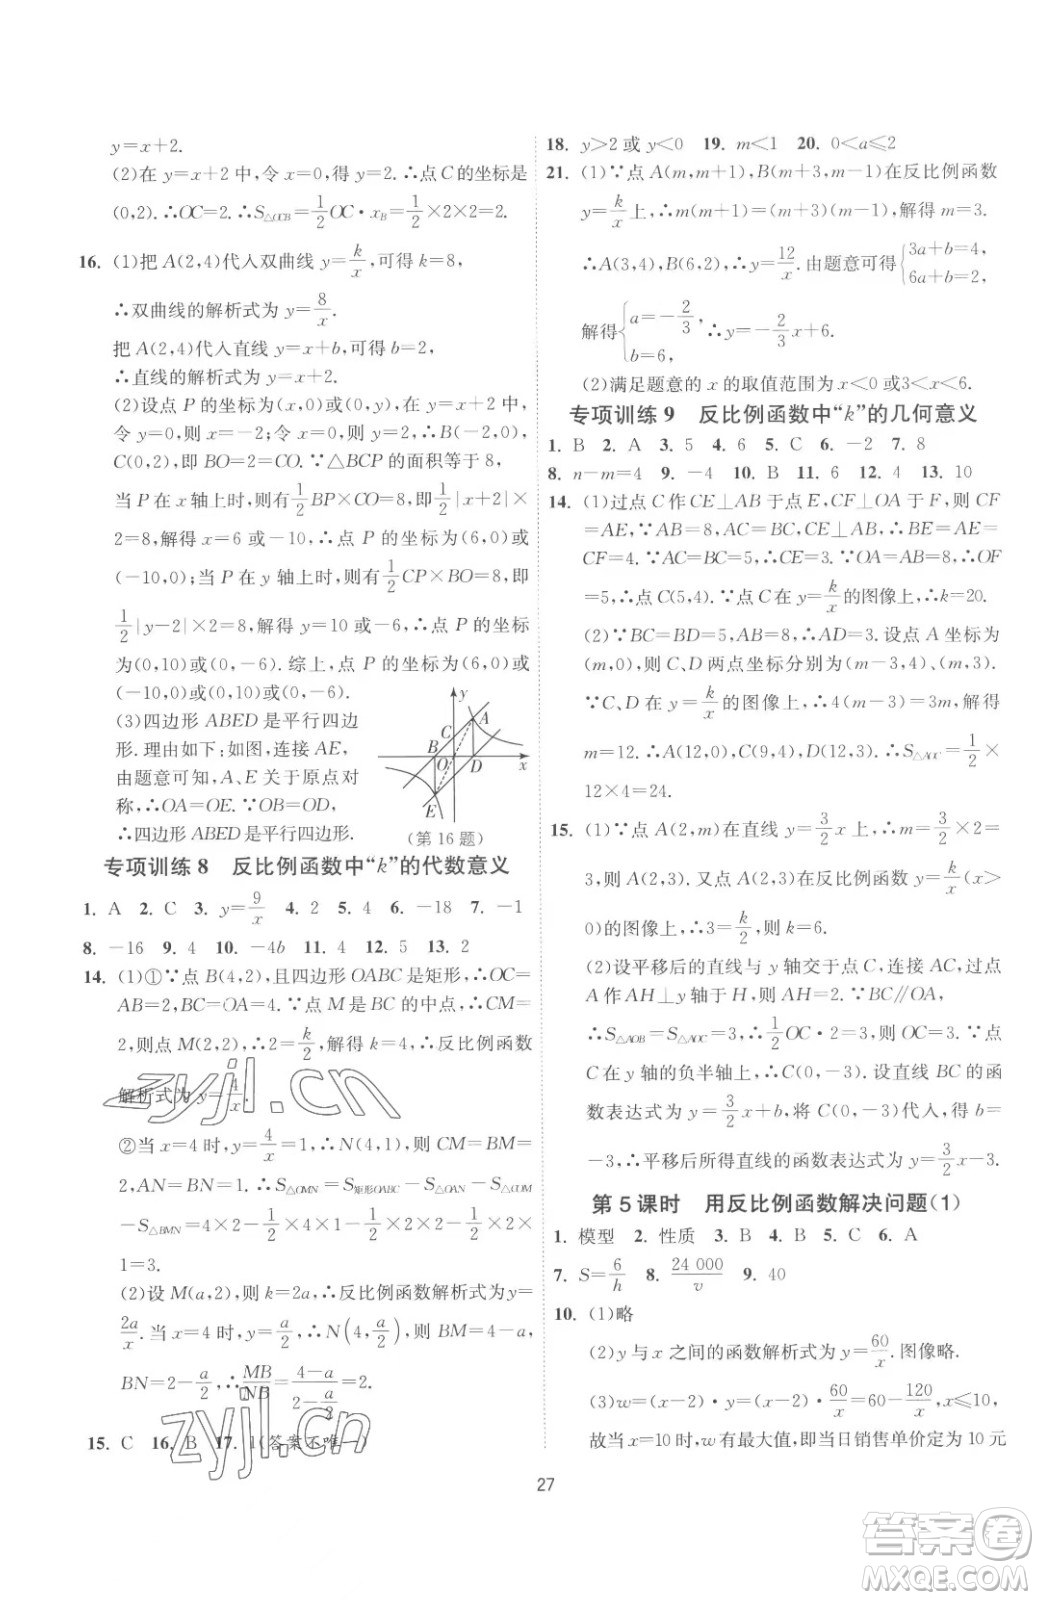 y=x+2.
(2)在 y=x+2中,令 x=0,得 y=2.∴点C的坐标是
(0,2).∴OC=2.∴S△OCB=1/2 OC·xB=1/2×2×2=2.
16. (1)把 A(2,4)代入双曲线 y=k/x,可得 k=8,
∴双曲线的解析式为 y=8/x.
把 A(2,4)代入直线 y=x+b,可得 b=2,
∴直线的解析式为 y=x+2.
(2)设点 P 的坐标为(x,0)或(0,y),在 y=x+2 中,
令 y=0,则 x=-2,令 x=0,则 y=2,∴B(-2,0),
C(0,2),即 BO=2=CO.∵△BCP 的面积等于 8,
当 P 在 x 轴上时,则有1/2 BP×CO=8,即1/2|x+2|×
2=8,解得 x=6 或-10,∴点 P 的坐标为(6,0)或
(-10,0);当 P 在 y 轴上时,则有1/2 CP×BO=8,即
1/2|y-2|×2=8,解得 y=10 或-6,∴点 P 的坐标
为(0,10)或(0,-6).综上,点 P 的坐标为(6,0)或
(-10,0)或(0,10)或(0,-6).
(3)四边形 ABED 是平行四边
形.理由如下:如图,连接 AE,
由题意可知,A、E 关于原点对
称,∴OA=OE.∵OB=OD,
∴四边形 ABED是平行四边形.
y
A
C
B
O
D
x
E
(第 16 题)
专项训练 8 反比例函数中“k”的代数意义
1. A 2. C 3. y=9/x 4. 2 5. 4 6. -18 7. -1
8. -16 9. 4 10. -4b 11. 4 12. 5 13. 2
14. (1)①∵点 B(4,2),且四边形 OABC 是矩形,∴OC=
AB=2,BC=OA=4.∵点 M 是 BC 的中点,∴CM=
2,则点 M(2,2),∴2=k/2,∴k=4,∴反比例函数
解析式为 y=4/x.
②当 x=4 时,y=4/x=1:∴N(4,1),则 CM=BM=
2,AN=BN=1.∴S△OMN=S矩形OABC-S△OAN-S△COM
-S△BMN=4×2-1/2×4×1-1/2×4×1-1/2×2×
1=3.
(2)设 M(a,2),则 k=2a,∴反比例函数解析式为y=
2a/x.当 x=4 时,y=a/2,∴N(4,a/2),则 BM=4-a,
BN=2-a/2,∴MB/NB=(4-a)/(2-a/2)=2.
15. C 16. B 17. 1(答案不唯一)
18. y>2 或 y<0 19. m<1 20. 0<a≤2
21. (1)∵点 A(m,m+1),B(m+3,m-1)在反比例函数
y=k/x上,∴m(m+1)=(m+3)(m-1),解得 m=3.
∴A(3,4),B(6,2),∴y=12/x.由题意可得{3a+b=4,
6a+b=2,
解得{a=-2/3,
b=6, ∴y=-2/3x+6.
(2)满足题意的 x 的取值范围为 x<0 或3<x<6.
专项训练 9 反比例函数中“k”的几何意义
1. B 2. A 3. 5 4. 6 5. C 6. -2 7. 8
8. n-m=4 9. -4 10. B 11. 6 12. 4 13. 10
14. (1)过点 C 作 CE⊥AB 于点 E,CF⊥OA 于 F,则 CF
=AE,∵AB=8,AC=BC,CE⊥AB,∴BE=AE=
CF=4.∵AC=BC=5,∴CE=3.∵OA=AB=8,∴OF
=5,∴点 C(5,4).∵点 C在y=k/x的图像上,∴k=20.
(2)∵BC=BD=5,AB=8,∴AD=3.设点 A 坐标为
(m,0),则 C、D 两点坐标分别为(m-3,4)、(m,3).
∵C、D 在 y=k/x的图像上,∴4(m-3)=3m,解得
m=12.∴A(12,0),C(9,4),D(12,3).∴S△AOC=1/2×
12×4=24.
15. (1)∵点 A(2,m)在直线 y=3/2x 上,∴m=3/2×2=
3,则 A(2,3).又点 A(2,3)在反比例函数 y=k/x(x>
0)的图像上,∴3=k/2,∴k=6.
(2)设平移后的直线与 y 轴交于点 C,连接AC,过点
A 作AH⊥y 轴于 H,则 AH=2.∵BC∥OA,
∴S△AOB=S△AOC=3,∴1/2 OC·2=3,则 OC=3.∵点
C在 y 轴的负半轴上,∴C(0,-3).设直线 BC 的函
数表达式为 y=3/2x+b,将 C(0,-3)代入,得 b=
-3,∴平移后所得直线的函数表达式为 y=3/2x-3.
第 5 课时 用反比例函数解决问题(1)
1. 模型 2. 性质 3. B 4. B 5. C 6. A
7. S=6/h 8. 24 000/v 9. 40
10. (1)略
(2)y 与 x 之间的函数解析式为 y=60/x.图像略.
(3)w=(x-2)·y=(x-2)·60/x=60-120/x,x≤10,
故当 x=10 时,w 有最大值,即当日销售单价定为 10 元
27
zyjl.cn
zyjl.cn
答案圈
MXQE.COM